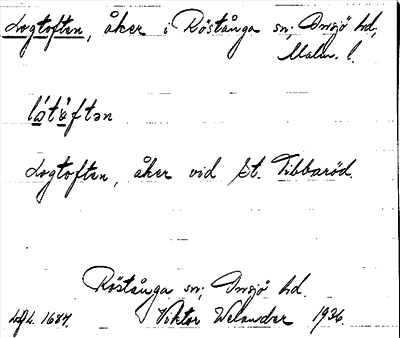 Logtoften, åker i Röstånga sn; Onsjö hd,
Malm. l.
låtåftən
Logtoften, åker vid St. Tibbaröd.
Röstånga sn; Onsjö hd.
1687. Viktor Welander 1936.